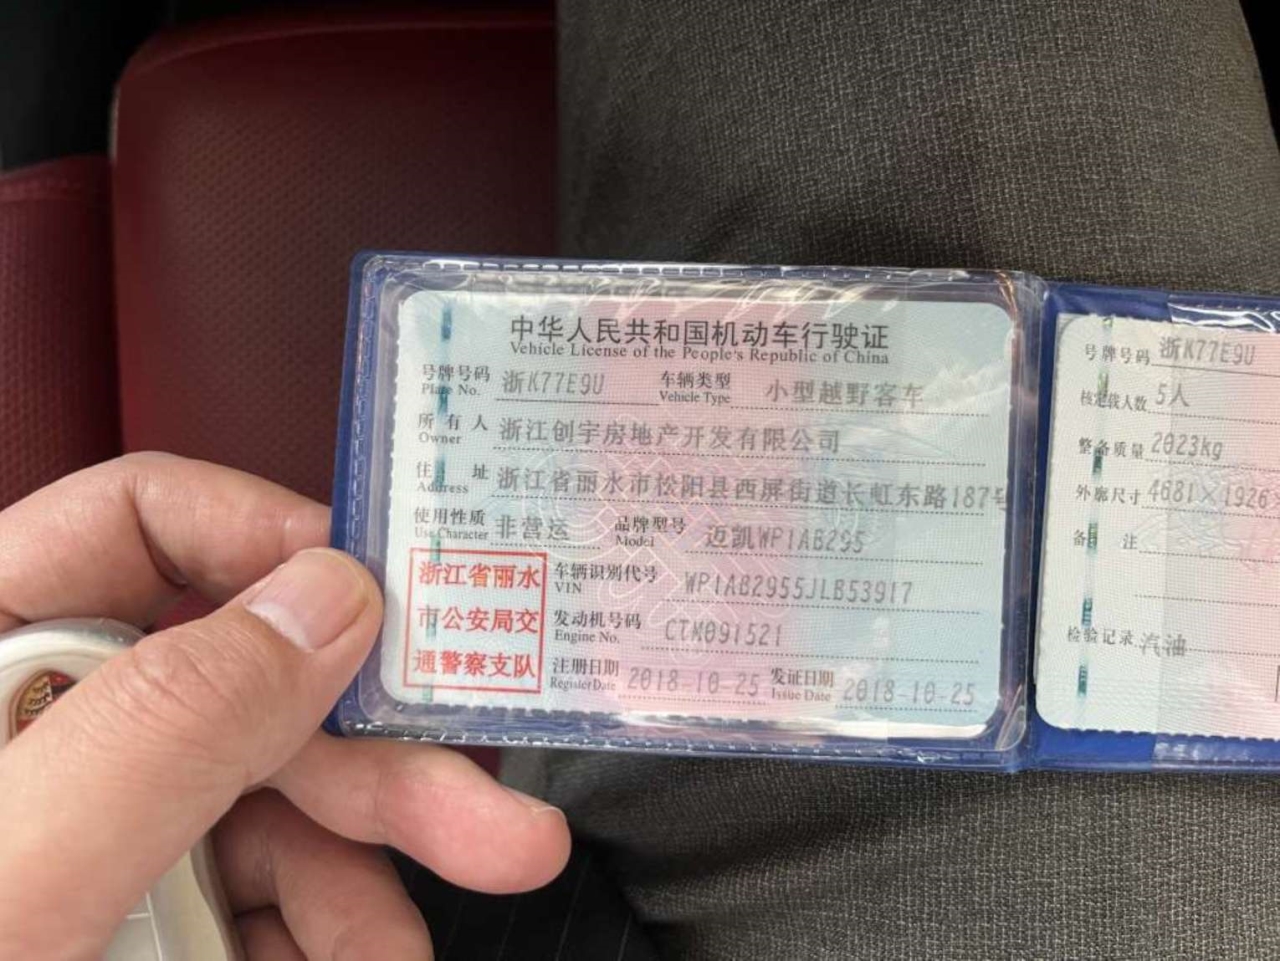 中华人民共和国机动车行驶证
Vehicle License of the People's Republic of China
号牌号码 浙K77E9U 车辆类型 小型越野客车
Plate No. Vehicle Type
所有人 浙江创宇房地产开发有限公司
Owner
住址 浙江省丽水市松阳县西屏街道长虹东路187号
Address
使用性质 非营运 品牌型号 迈凯WP1AB295
Use Character Model
浙江省丽水
市公安局交
通警察支队
车辆识别代号 WP1AB2955JLB53917
VIN
发动机号码 CTM091521
Engine No.
注册日期 2018-10-25 发证日期 2018-10-25
Register Date Issue Date
号牌号码 浙K77E9U
核定载人数 5人
整备质量 2023kg
外廓尺寸 4681×1926
备注
检验记录 汽油